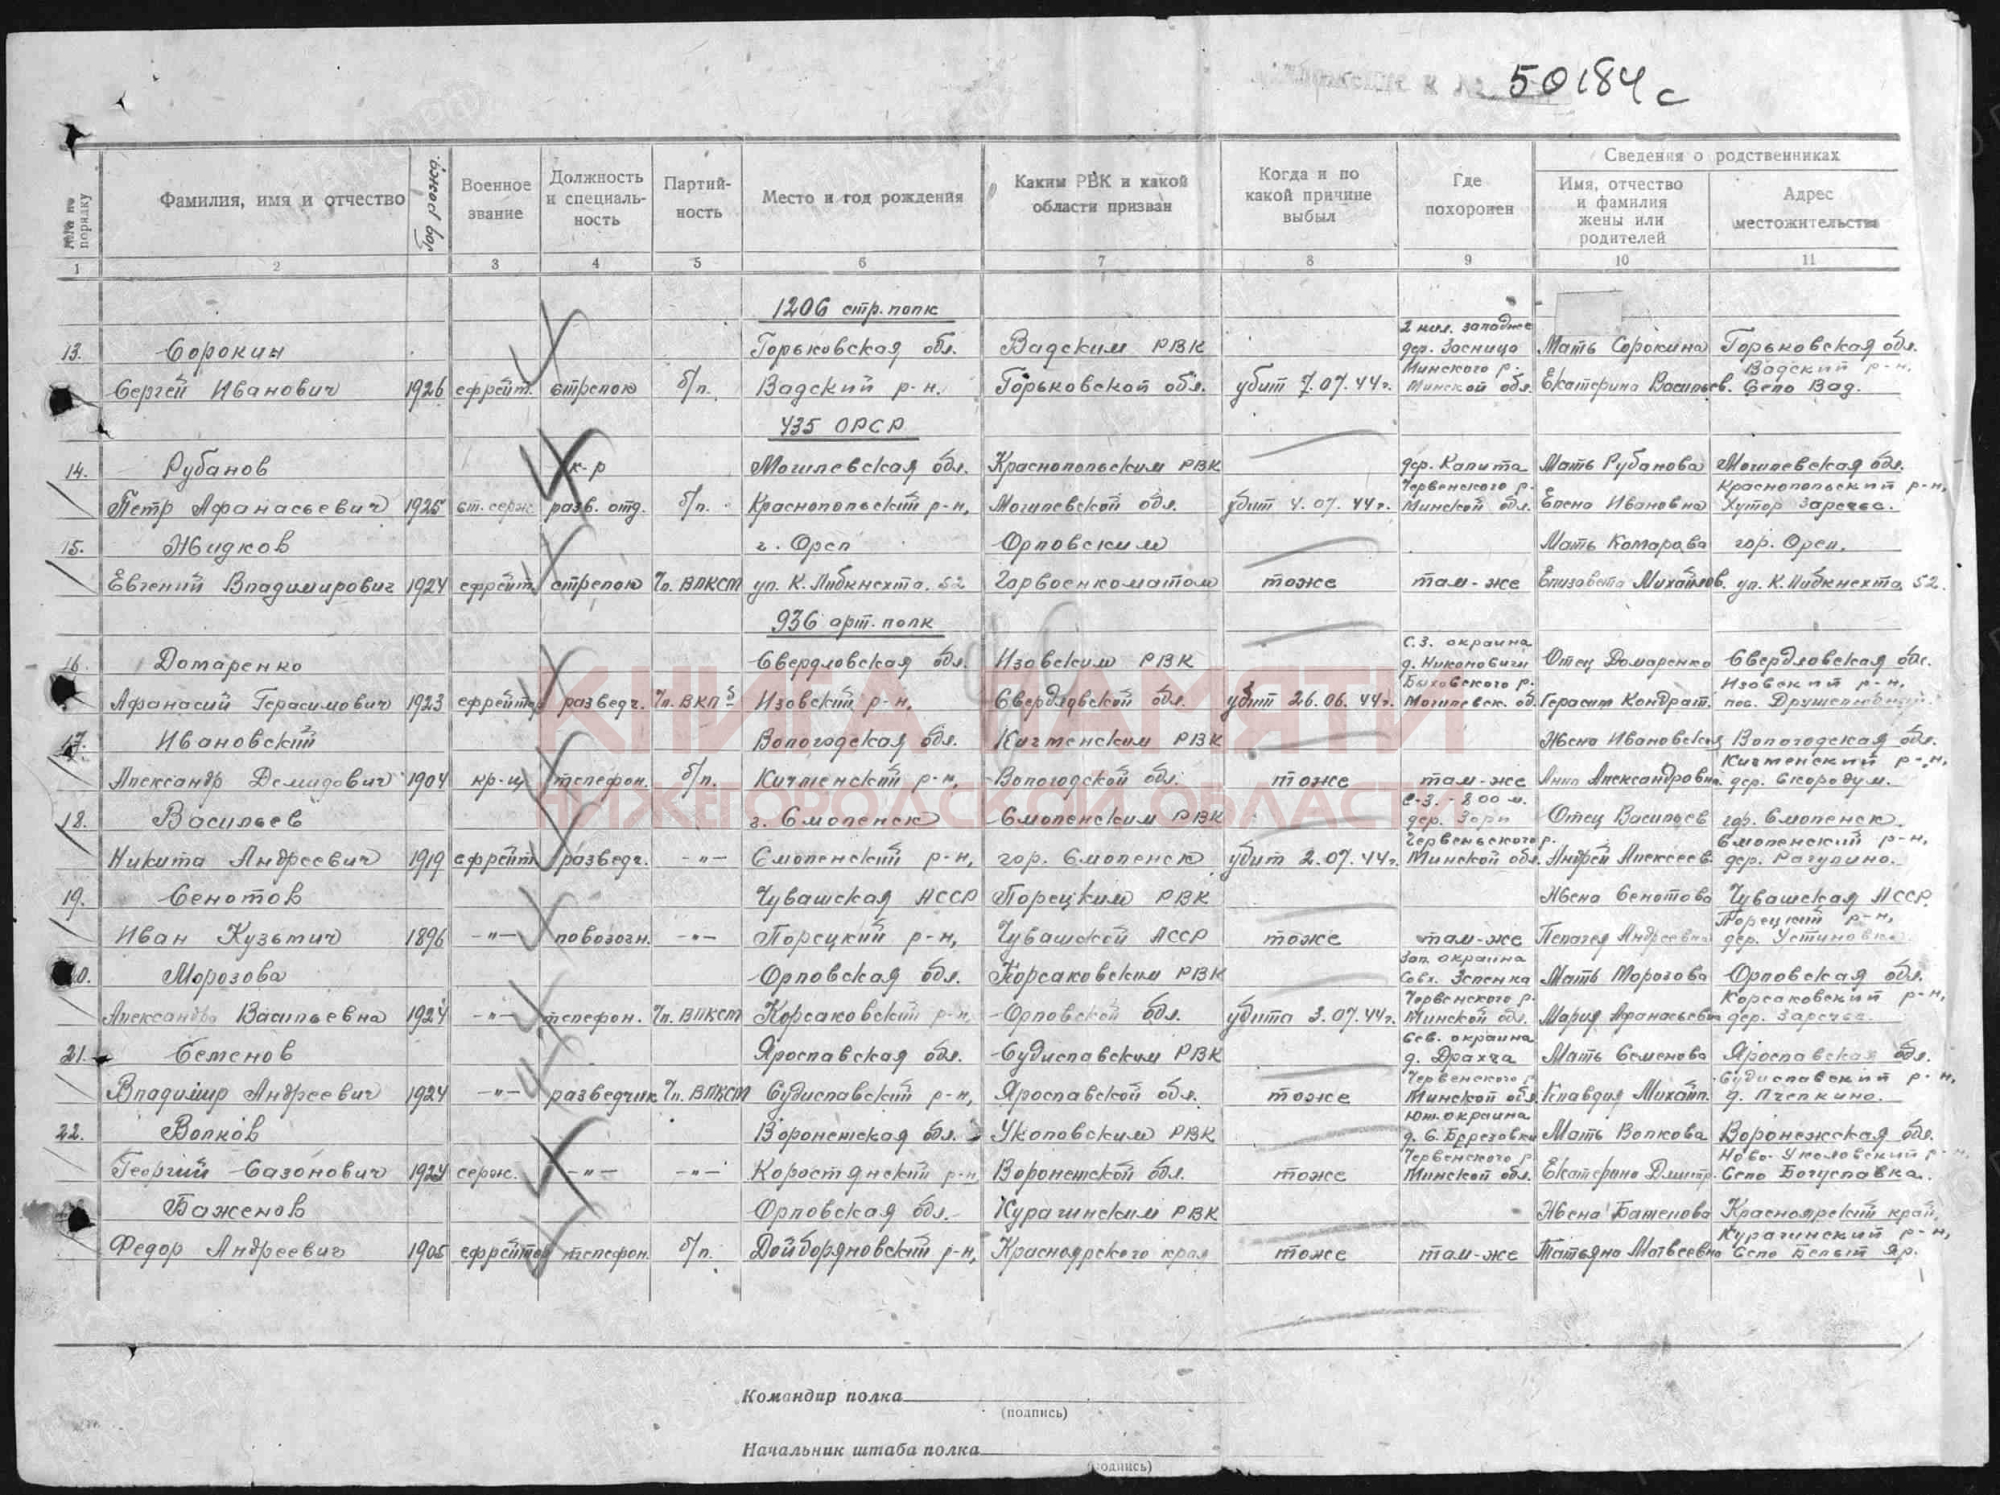 50184с
№№ по порядку
Фамилия, имя и отчество
год рожд.
Военное звание
Должность и специаль-ность
Партий-ность
Место и год рождения
Каким РВК и какой области призван
Когда и по какой причине выбыл
Где похоронен
Сведения о родственниках
Имя, отчество и фамилия жены или родителей
Адрес местожительства
1 2 3 4 5 6 7 8 9 10 11
1206 стр. полк
2 кил. западнее
13. Сорокин Горьковская обл. Вадским РВК дер. Засница Мать Сорокина Горьковская обл.
Минского р. Вадский р-н,
Сергей Иванович 1926 ефрейт. стрелок б/п. Вадский р-н. Горьковской обл. убит 7.07.44г. Минской обл. Екатерина Васильев. Село Вад.
435 ОРСР
14. Рубанов к-р Могилевская обл. Краснопольским РВК дер. Капита Мать Рубанова Могилевская обл.
Червенского р. Краснопольский р-н,
Петр Афанасьевич 1925 ст. серж. разв. отд. б/п. Краснопольский р-н, Могилевской обл. убит 4.07.44г. Минской обл. Елена Ивановна Хутор Заречье.
15. Жидков г. Орел Орловским Мать Комарова гор. Орел,
Евгений Владимирович 1924 ефрейт. стрелок Чл. ВЛКСМ ул. К. Либкнехта. 52 Горвоенкоматом тоже там-же Елизавета Михайлов. ул. К. Либкнехта, 52.
936 арт. полк
С.З. окраина
16. Домаренко Свердловская обл. Изовским РВК д. Никоновичи Отец Домаренко Свердловская обл.
Быховского р. Изовский р-н,
Афанасий Герасимович 1923 ефрейтор разведч. Чл. ВКПб Изовский р-н. Свердловской обл. убит 26.06.44г. Могилевск. об. Герасим Кондрат. пос.
17. Ивановский Вологодская обл. Кичменским РВК Жена Ивановская Вологодская обл.
Кичменский р-н,
Александр Демидович 1904 кр-ц телефон. б/п. Кичменский р-н, Вологодской обл. тоже там-же Анна Александровна дер. Скородум.
С-З. - 800 м.
18. Васильев г. Смоленск Смоленским РВК дер. Зори Отец Васильев гор. Смоленск.
Червеньского р. Смоленский р-н,
Никита Андреевич 1919 ефрейт. разведч. -"- Смоленский р-н, гор. Смоленск убит 2.07.44г. Минской обл. Андрей Алексеев. дер. Рагулино.
19. Сенотов Чувашская АССР Порецким РВК Жена Сенотова Чувашская АССР
Порецкий р-н,
Иван Кузьмич 1896 -"- повозочн. -"- Порецкий р-н, Чувашской АССР тоже там-же Пелагея Андреевна дер. Устиновка.
Зап. окраина
20. Морозова Орловская обл. Корсаковским РВК Совх. Зеленка Мать Морозова Орловская обл.
Червенского р. Корсаковский р-н,
Александра Васильевна 1924 -"- телефон. Чл. ВЛКСМ Корсаковский р-н, Орловской обл. убита 3.07.44г. Минской обл. Мария Афанасьевн. дер. Заречье.
Сев. окраина
21. Семенов Ярославская обл. Судиславским РВК д. Драхча Мать Семенова Ярославская обл.
Червенского р. Судиславский р-н,
Владимир Андреевич 1924 -"- разведчик Чл. ВЛКСМ Судиславский р-н, Ярославской обл. тоже Минской обл. Клавдия Михайл. д. Пчелкино.
Юж. окраина
22. Волков Воронежская обл. Уколовским РВК д. С. Березовки Мать Волкова Воронежская обл.
Червенского р. Ново-Уколовский р-н,
Георгий Сазонович 1924 серж. -"- -"- Коростянский р-н Воронежской обл. тоже Минской обл. Екатерина Дмитр. Село Богуславка.
Баженов Орловская обл. Курагинским РВК Жена Баженова Красноярский край,
Курагинский р-н,
Федор Андреевич 1905 ефрейтор телефон. б/п. Дойборяновский р-н, Красноярского края тоже там-же Татьяна Матвеевна Село Белый Яр.
КНИГА ПАМЯТИ
НИЖЕГОРОДСКОЙ ОБЛАСТИ
Командир полка
(подпись)
Начальник штаба полка
(подпись)